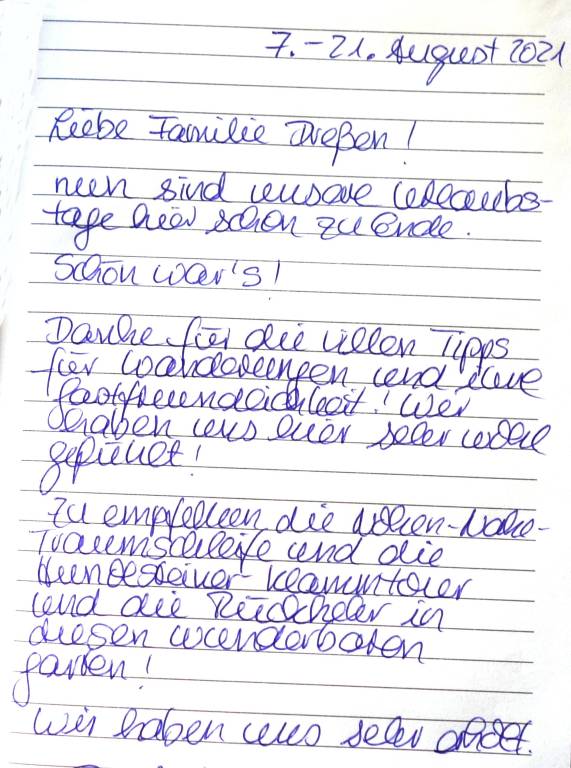 7.-21. August 2021
Liebe Familie Dreßen!
nun sind unsere Urlaubs-
tage hier schon zu Ende.
Schön war's!
Danke für die vielen Tipps
für Wanderungen und eure
Gastfreundlichkeit! Wir
haben uns hier sehr wohl
gefühlt!
Zu empfehlen die Nohen-Nahe-
Traumschleife und die
Klammtour
und die Rückkehr in
diesen wunderbaren
Garten!
Wir haben uns sehr